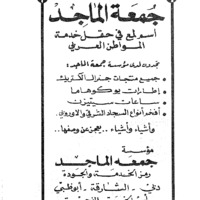 جمعة الماجد
اسم لمع في حقل خدمة
المواطن العربي
تجدون لدى مؤسسة جمعة الماجد:
جميع منتجات جنرال الكتريك
إطارات يوكوهاما
ساعات سيتيزن
أفخم أنواع السجاد الشرقي والاوروبي
وأشياء وأشياء.. يعجز عن وصفها..
مؤسسة
جمعه الماجد
رمز الخدمة والجودة
دبي - الشارقة - أبوظبي